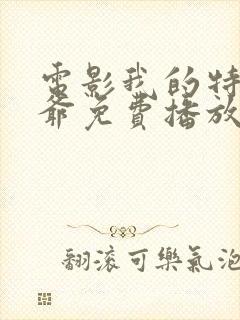 電影我的特
爺免費播放
翻滾可樂氣泡